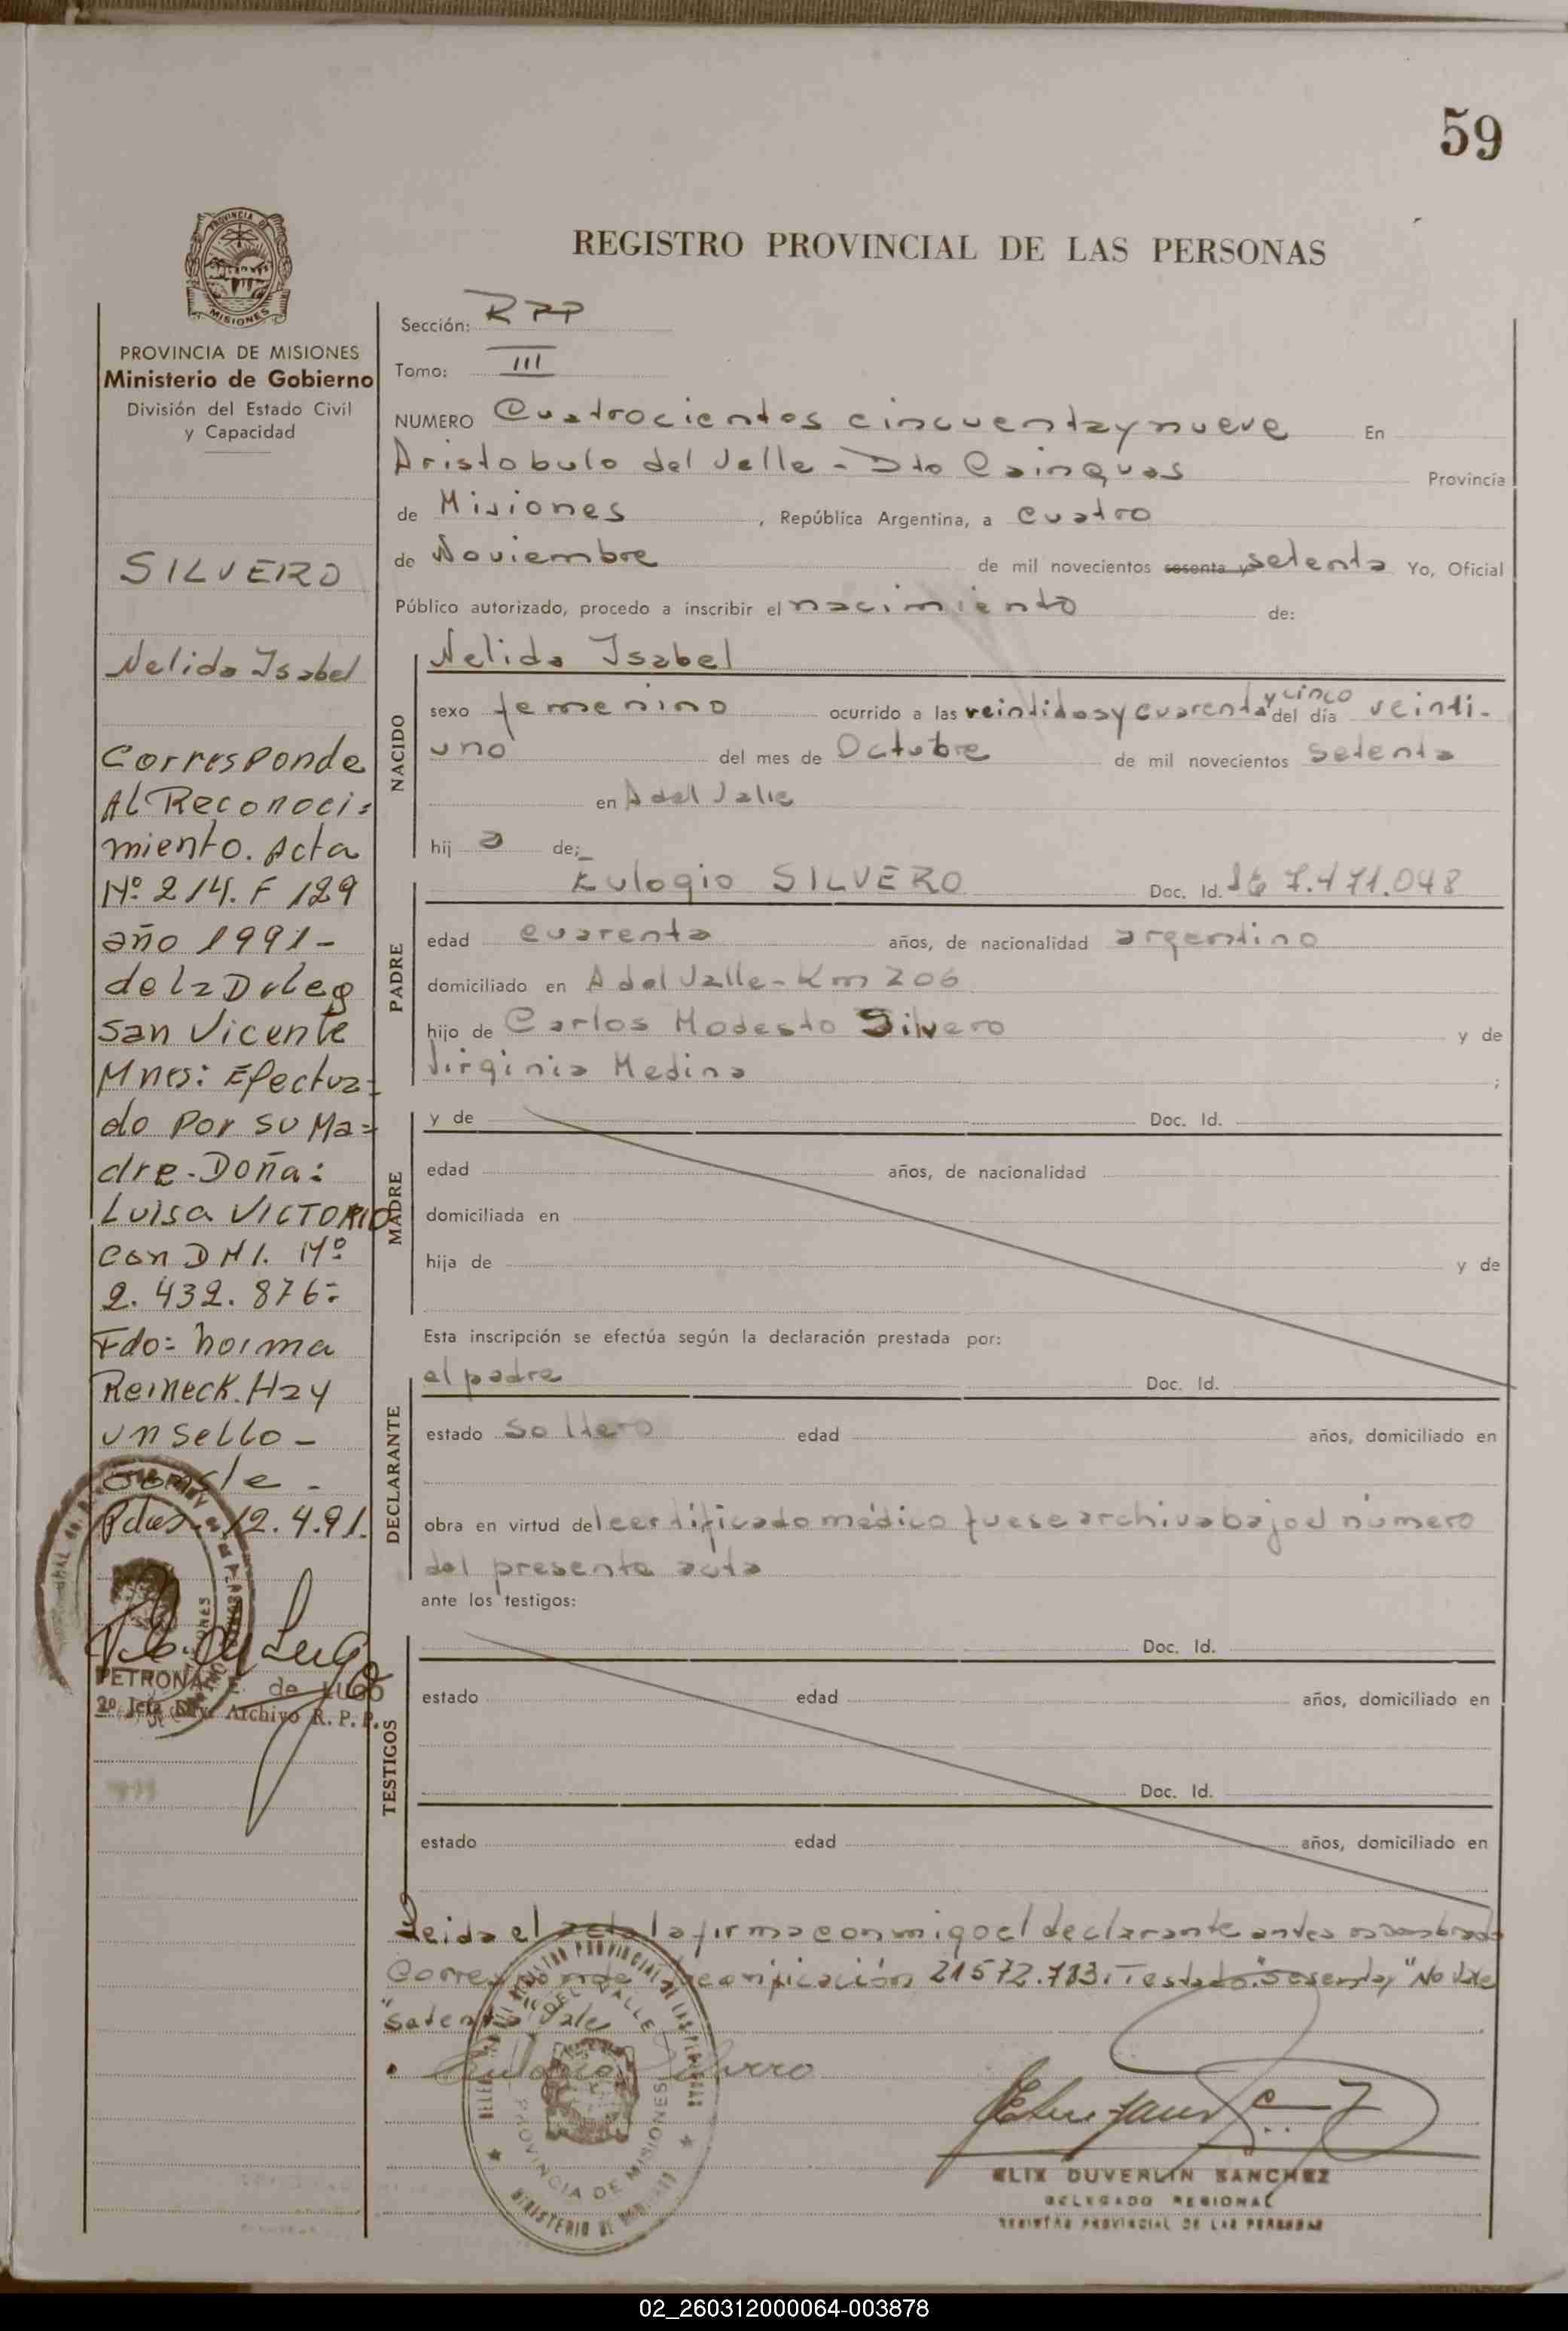 59
REGISTRO PROVINCIAL DE LAS PERSONAS
PROVINCIA DE MISIONES
Ministerio de Gobierno
División del Estado Civil
y Capacidad
SILVERO
Nelida Isabel
Corresponde
Al Reconoci=
miento. Acta
Nº 214. F 129
año 1991-
de la Deleg
San Vicente
Mnes: Efectua=
do Por su Ma=
dre. Doña:
Luisa VICTORIO
con DNI. Nº
2.432.876=
Fdo= Norma
Reineck. Hay
un sello -
Pdas. 12.4.91.
PETRONA de LUGO
2º Jefa Div. Archivo R.P.P.
Sección: RPP
Tomo: III
NUMERO Cuatrocientos cincuenta y nueve En
Aristobulo del Valle - Dto Cainguas Provincia
de Misiones, República Argentina, a cuatro
de Noviembre de mil novecientos sesenta y setenta Yo, Oficial
Público autorizado, procedo a inscribir el nacimiento de:
NACIDO
Nelida Isabel
sexo femenino ocurrido a las veintidos y cuarenta y cinco del día veinti-
uno del mes de Octubre de mil novecientos setenta
en A del Valle
hij a de:
PADRE
Eulogio SILVERO Doc. Id. 7.471.048
edad cuarenta años, de nacionalidad argentino
domiciliado en A del Valle - Km 206
hijo de Carlos Modesto Silvero y de
Virginia Medina ;
MADRE
y de Doc. Id.
edad años, de nacionalidad
domiciliada en
hija de y de
Esta inscripción se efectúa según la declaración prestada por:
DECLARANTE
el padre Doc. Id.
estado soltero edad años, domiciliado en
obra en virtud del certificado médico que se archiva bajo el número
del presente acta
ante los testigos:
TESTIGOS
Doc. Id.
estado edad años, domiciliado en
Doc. Id.
estado edad años, domiciliado en
Leida el acta la firma conmigo el declarante antes nombrado
Corresponde identificación 21572.783. Testado "sesenta y" No Vale
"setenta" Vale
Eulogio Silvero
DELEGACION REGISTRO PROVINCIAL DE LAS PERSONAS
DEL VALLE
PROVINCIA DE MISIONES
MINISTERIO DE
ELIX DUVERLIN SANCHEZ
DELEGADO REGIONAL
REGISTRO PROVINCIAL DE LAS PERSONAS
02_260312000064-003878